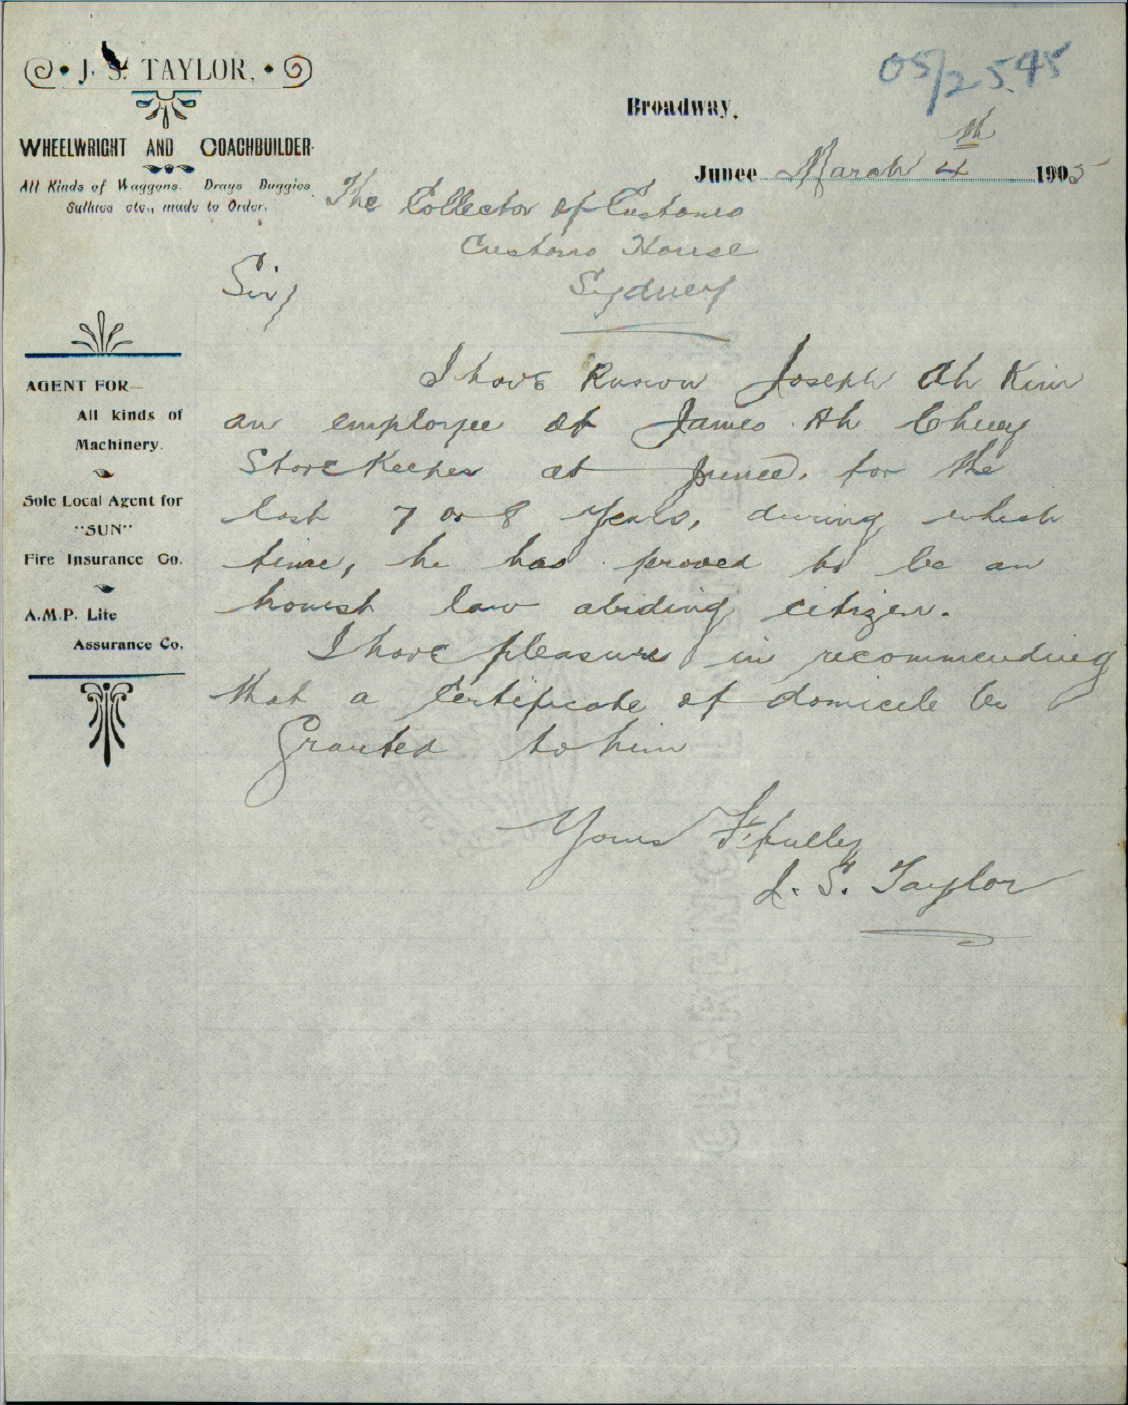 J. S. TAYLOR.
WHEELWRIGHT AND COACHBUILDER.
All Kinds of Waggons. Drays Buggies
Sulkies etc., made to Order.
05/2545
Broadway,
Junee March 4th 1905
The Collector of Customs
Customs House
Sydney
Sir,
AGENT FOR—
All kinds of
Machinery.
Sole Local Agent for
"SUN"
Fire Insurance Co.
A.M.P. Life
Assurance Co.
I have known Joseph Ah Kim
an employee of James Ah Chuey
Store Keeper at Junee, for the
last 7 or 8 years, during which
time, he has proved to be an
honest law abiding citizen.
I have pleasure in recommending
that a Certificate of domicile be
Granted to him
Yours F'fully
J. S. Taylor